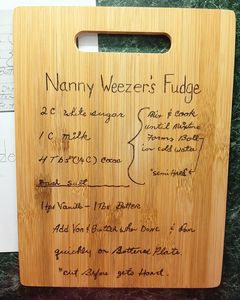 Nanny Weezer's Fudge
2 C white sugar
1 C milk
4 Tbs (1/4 C) cocoa
Dash salt
Mix & Cook
until Mixture
Forms Ball
in cold water
"semi Hard"
1 tps Vanilla - 1 tbs Butter
Add Van & Butter when Done &
quickly on Buttered Plate.
"cut Before gets Hard.